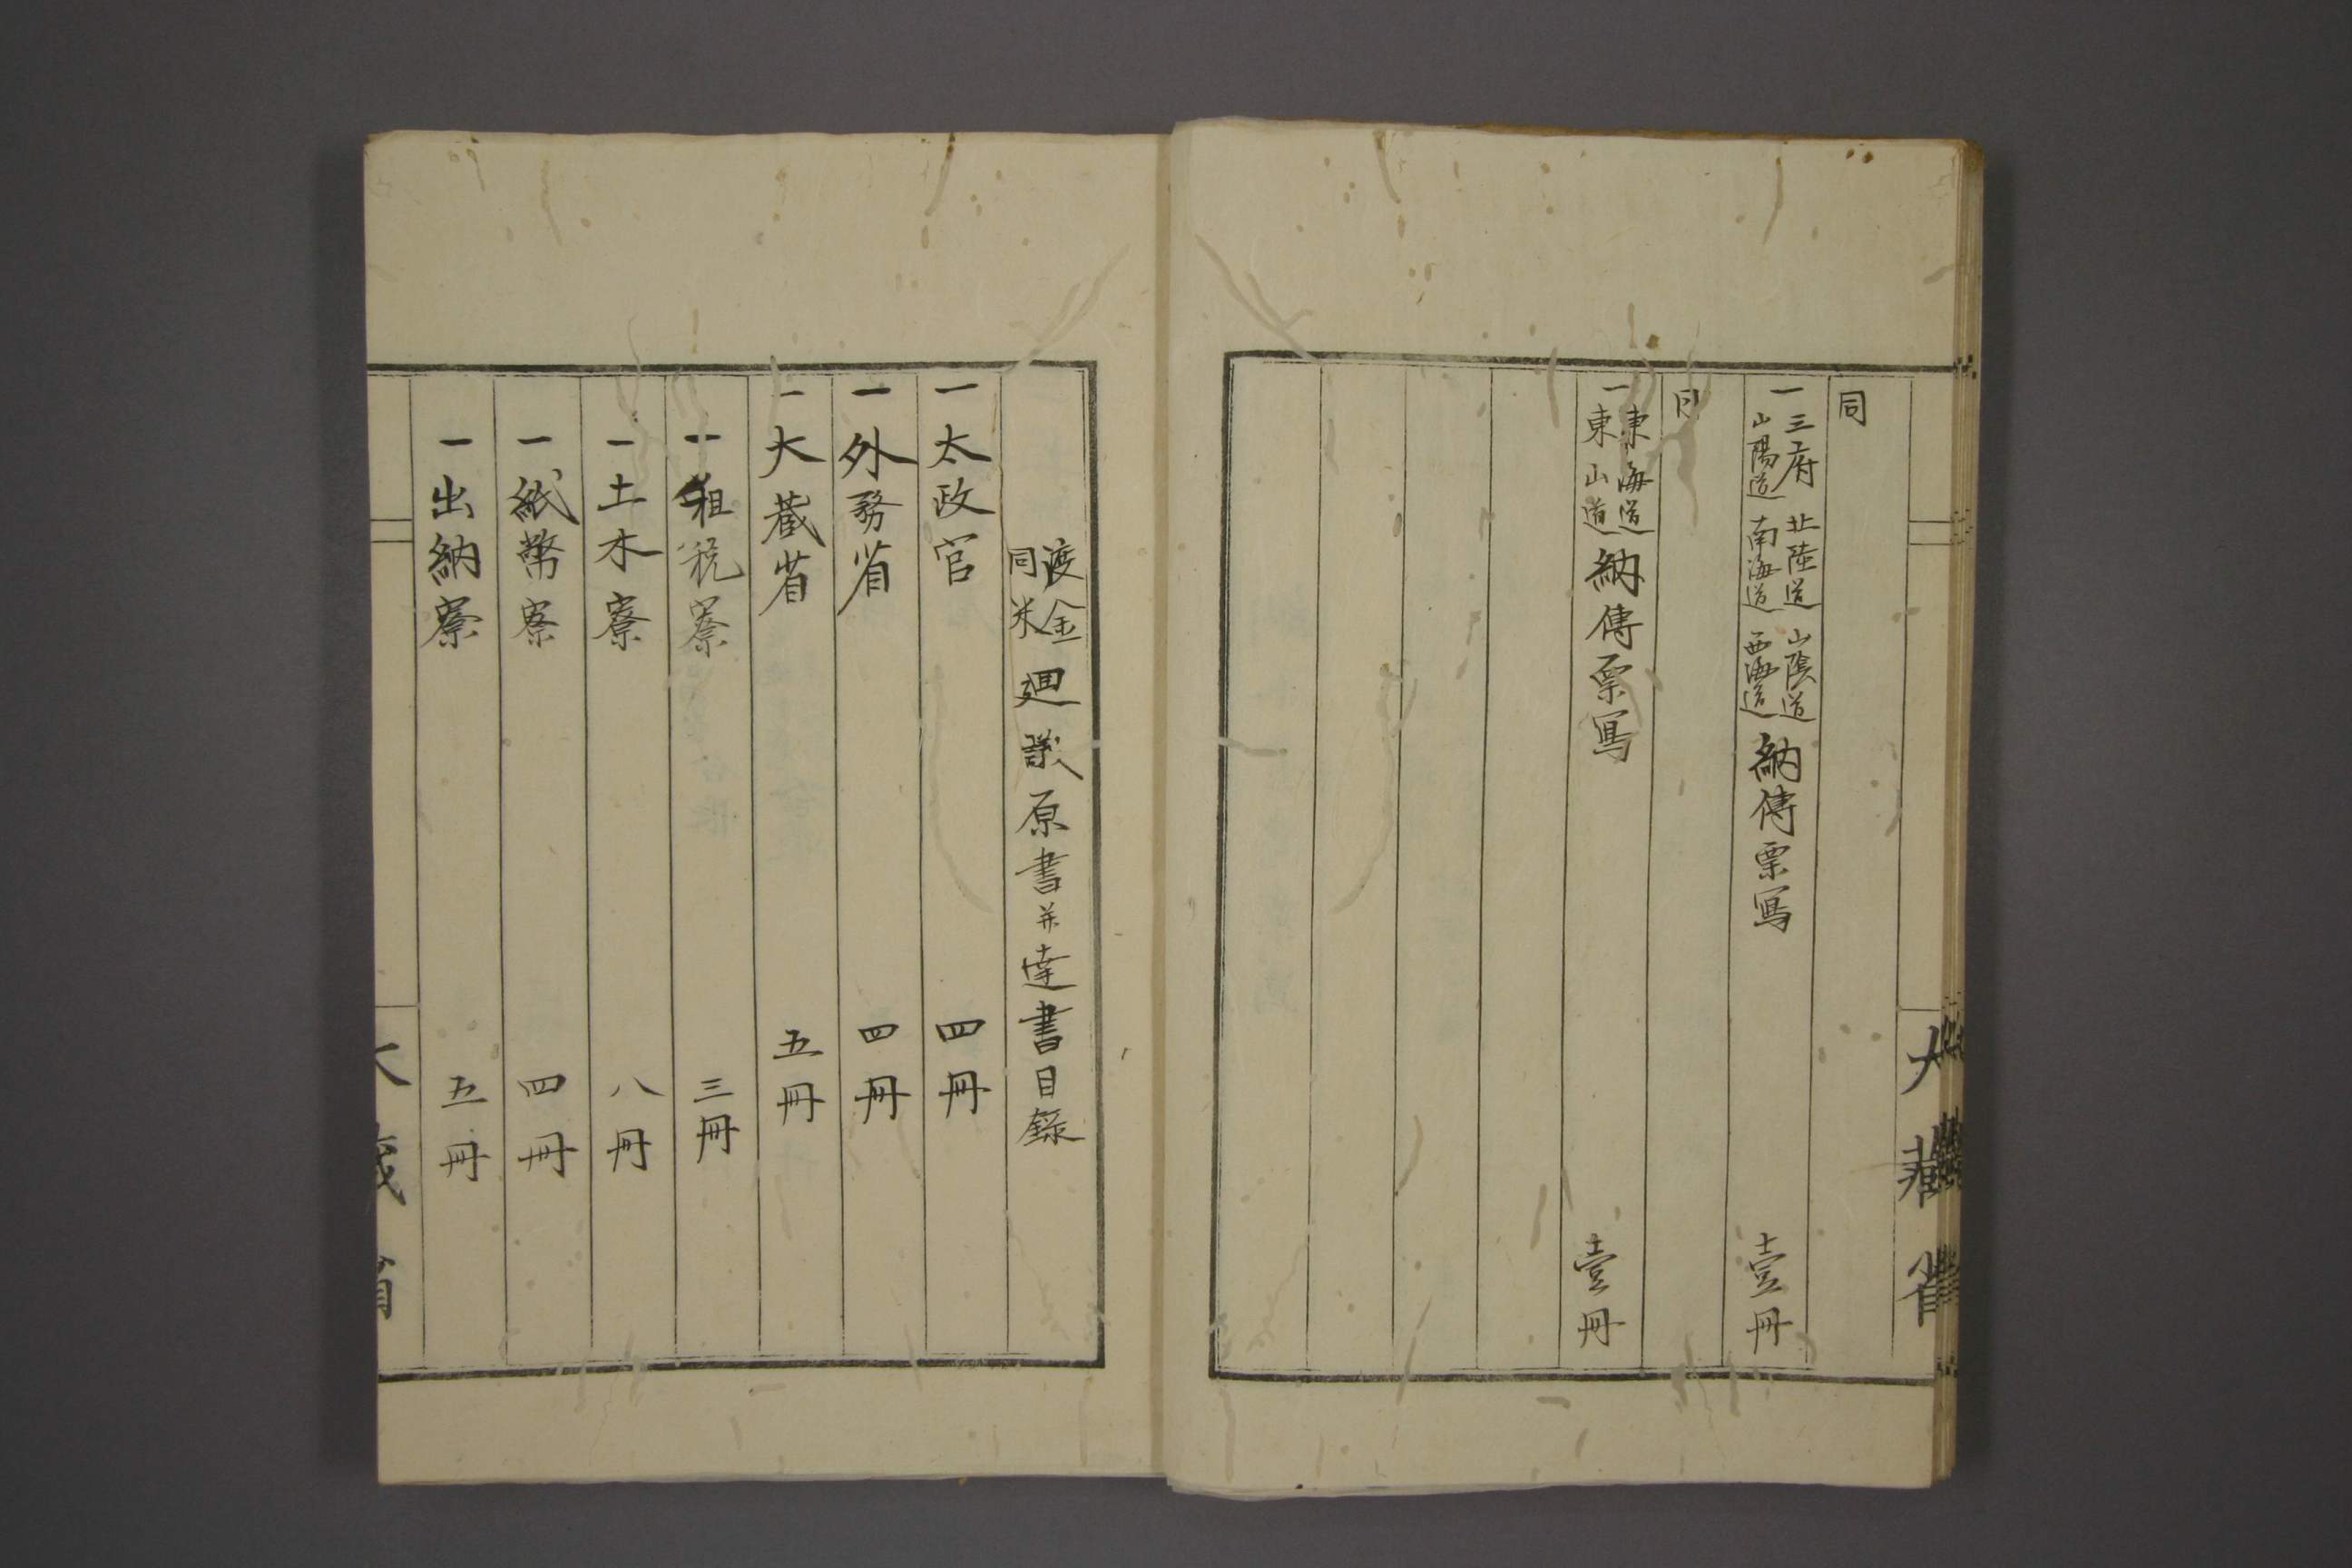 同
一三府 北陸道 山陰道
山陽道 南海道 西海道 納傳票寫 壹冊
同
一東海道
東山道 納傳票寫 壹冊
大藏省
渡金
同米 廻議原書并達書目録
一太政官 四冊
一外務省 四冊
一大蔵省 五冊
一租税寮 三冊
一土木寮 八冊
一紙幣寮 四冊
一出納寮 五冊